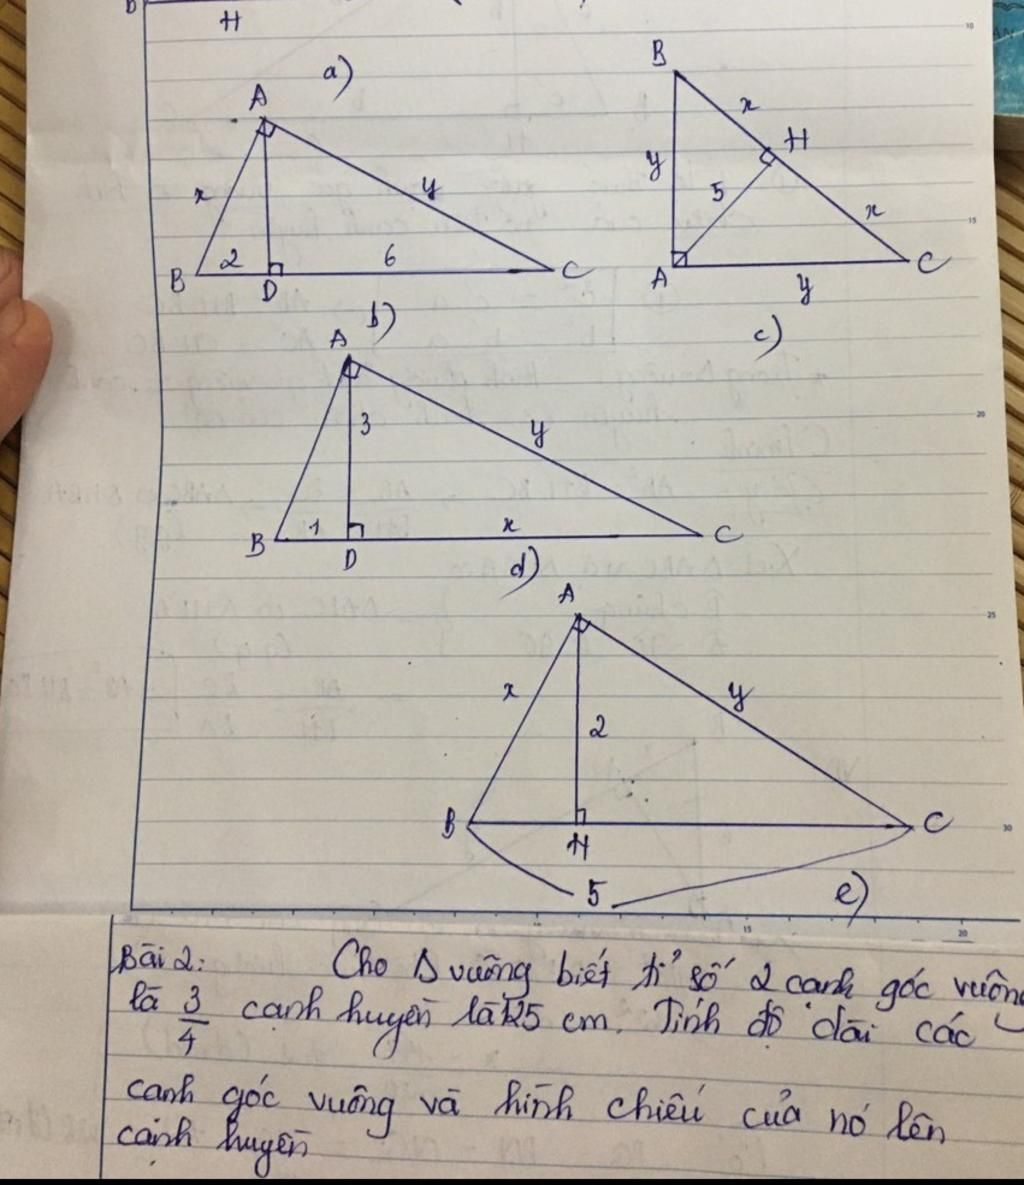 H
a)
A
x
y
B
2
D
6
C
b)
B
x
H
y
5
x
A
y
C
c)
A
3
y
B
1
D
x
C
d)
A
x
2
y
B
H
C
5
e)
Bài 2: Cho Δ vuông biết tỉ số 2 cạnh góc vuông
là 3/4 cạnh huyền là 125 cm. Tính độ dài các
cạnh góc vuông và hình chiếu của nó lên
cạnh huyền